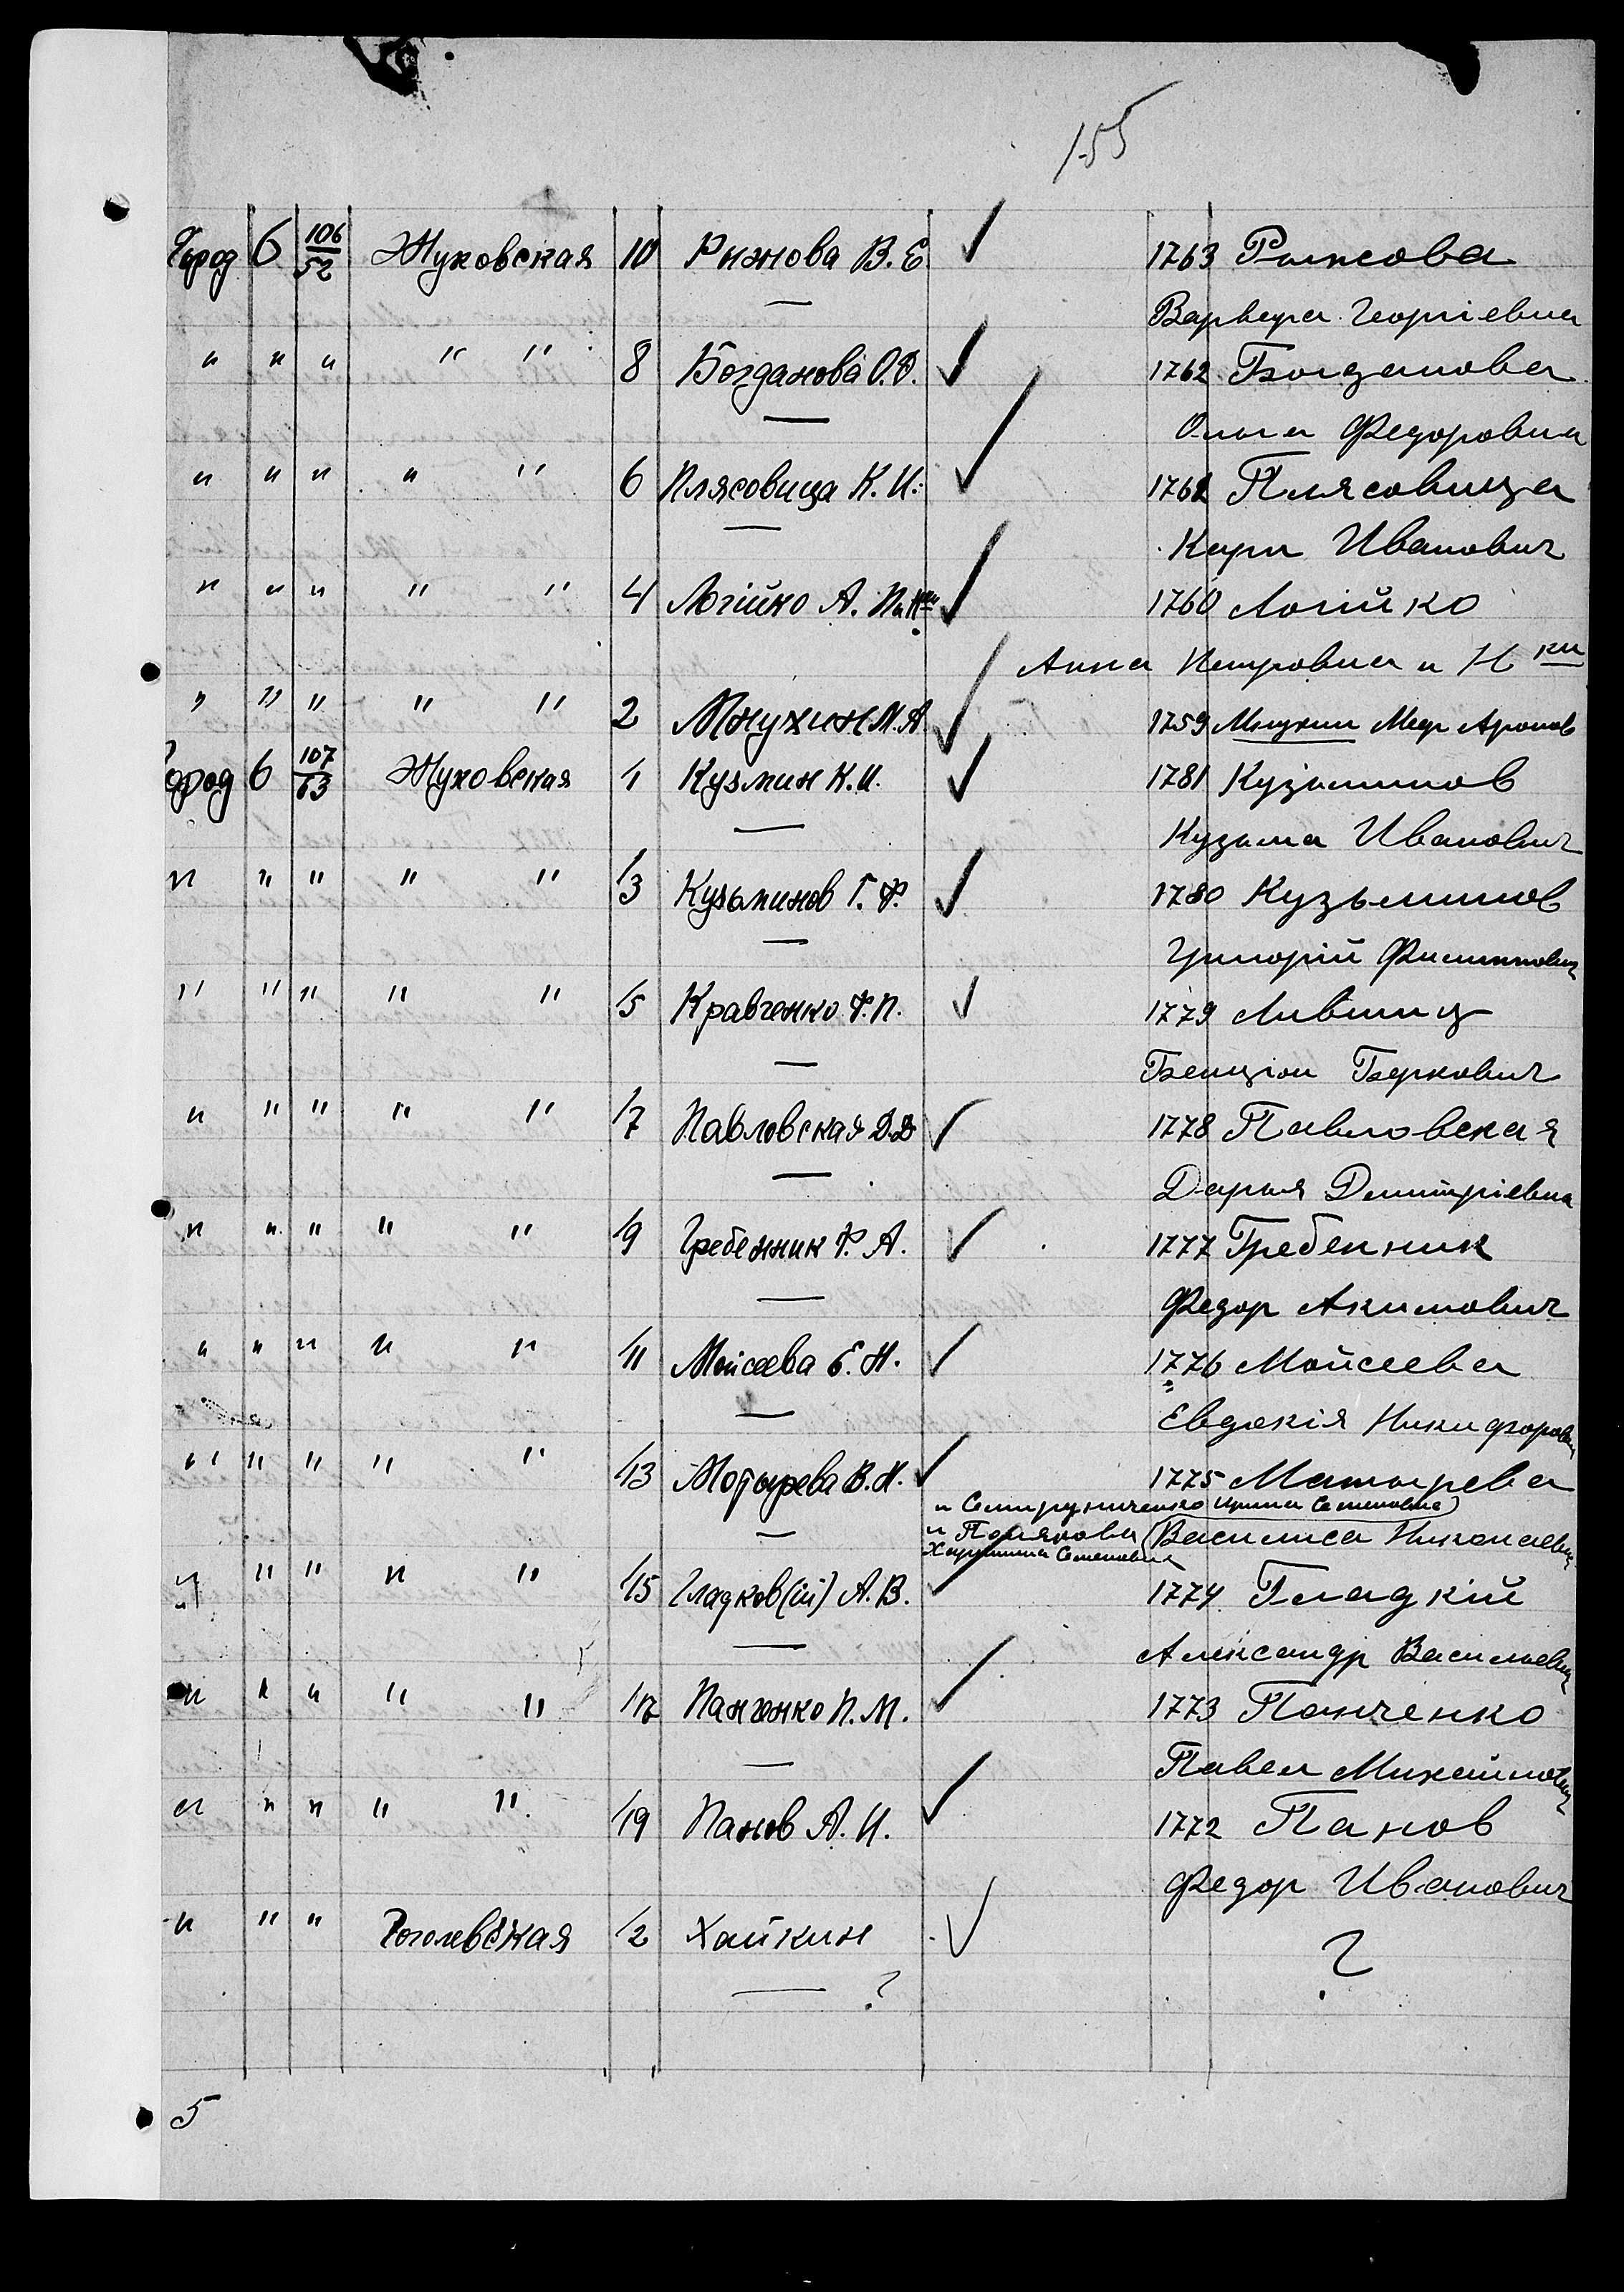 155
Город 6 106/52 Жуковская 10 Рыжова В. Е. 1763 Рыжова
Варвара Георгіевна
" " " " " 8 Богданова О. Ф. 1762 Богданова
Ольга Федоровна
" " " " " 6 Плясовица К. И. 1761 Плясовица
Карп Иванович
" " " " " 4 Логійко А. П. и Н-ки 1760 Логійко
Анна Петровна и Н-ки
" " " " " 2 Мнухин М. А. 1759 Мнухин Меер Аронов
Город 6 107/63 Жуковская 1 Кузмин К. И. 1781 Кузьминов
Кузьма Иванович
" " " " " 3 Кузьминов Г. Ф. 1780 Кузьминов
Григорій Филиппович
" " " " " 5 Кравченко Ф. П. 1779 Лившиц
Бенціон Беркович
" " " " " 7 Павловская Д. Д. 1778 Павловская
Дарья Дмитріевна
" " " " " 9 Гребенник Ф. А. 1777 Гребенник
Федор Акимович
" " " " " 11 Мойсеева Е. Н. 1776 Мойсеева
Евдокія Никифоровна
" " " " " 13 Мотырева В. Н. 1775 Мотырева
и Ирина Семеновна
и Полякова Василиса Николаевна
Семеновна
" " " " " 15 Гладков(ій) А. В. 1774 Гладкій
Александр Васильевич
" " " " " 17 Панченко П. М. 1773 Панченко
Павел Михайлович
" " " " " 19 Панов А. И. 1772 Панов
Федор Иванович
" " " Гоголевская 2 Хайкин ?
?
5